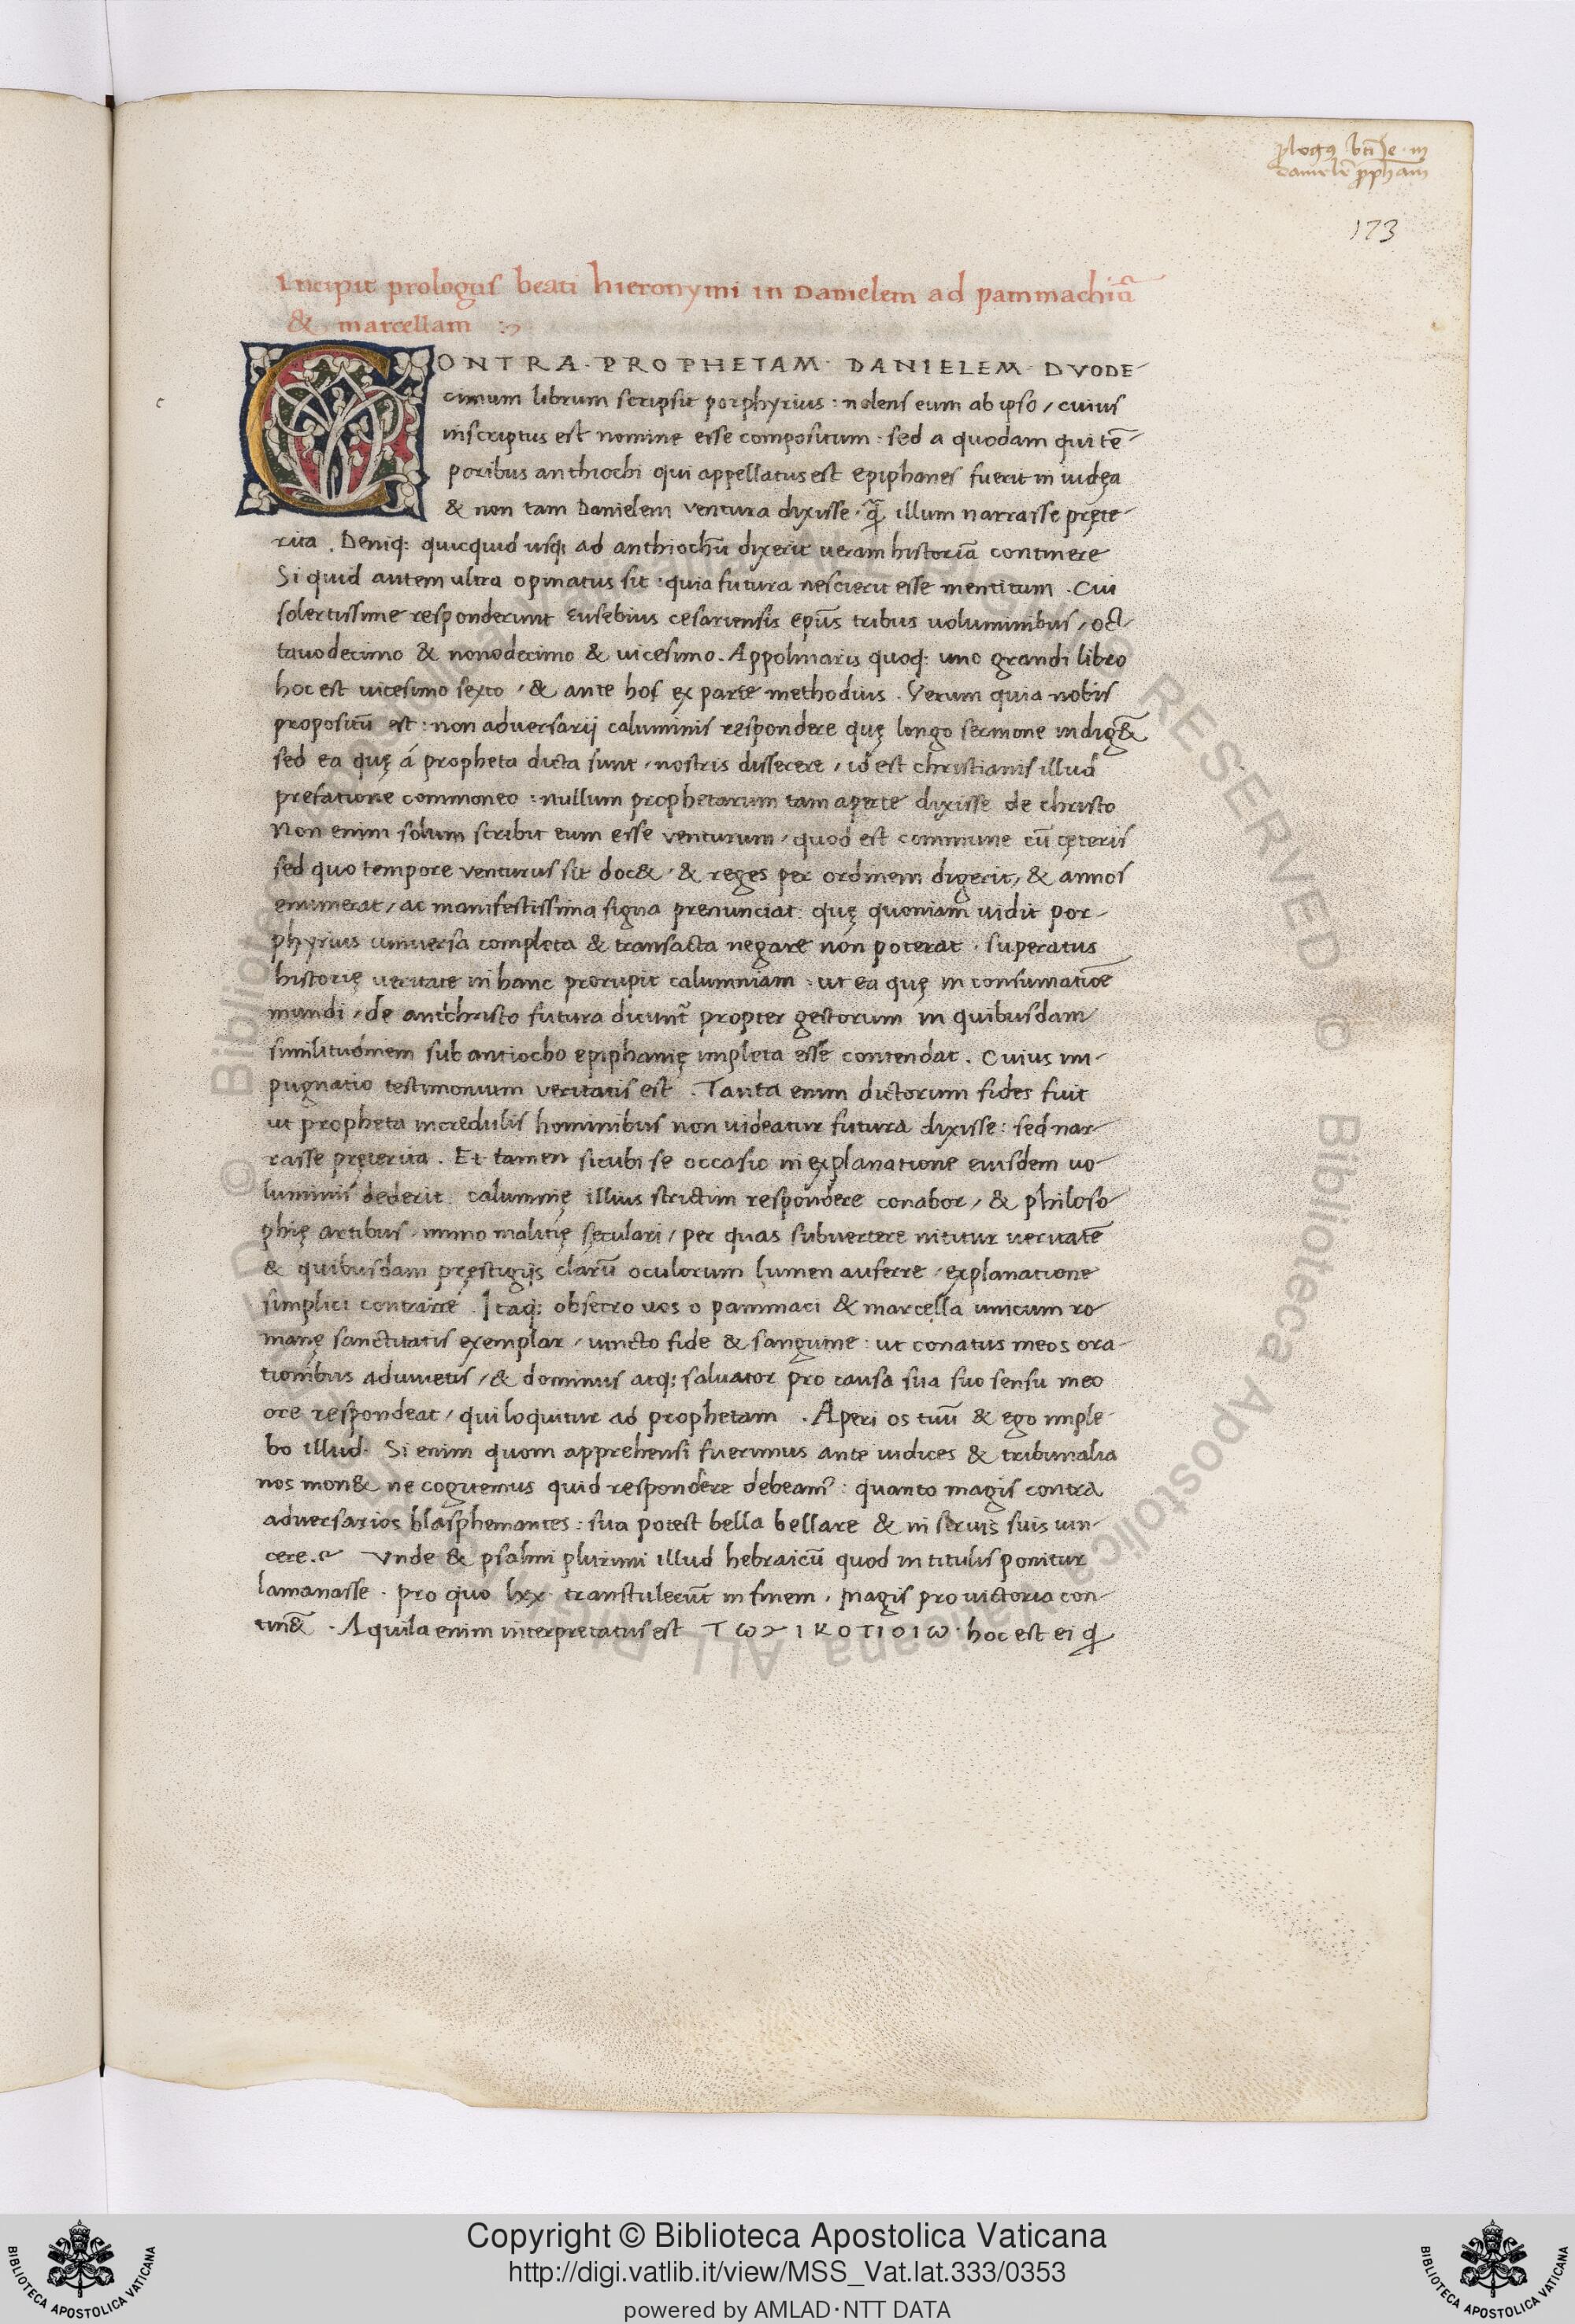 ꝓlogꝰ bti Ie. in
danielē ꝓphãm
173
Incipit prologus beati hieronymi in Danielem ad pammachiū
& marcellam :~
CONTRA. PROPHETAM. DANIELEM. DVODE-
c
cimum librum scripsit porphyrius: nolens eum ab ipso / cuius
inscriptus est nomine esse compositum: sed a quodam qui tē-
poribus anthiochi qui appellatus est epiphanes fuerit in iudęa
& non tam Danielem ventura dixisse. q̃ illum narrasse pręte-
rita. Deniq; quicquid usq; ad anthiochū dixerit veram historiā continere
Si quid autem ultra opinatus sit: quia futura nescierit esse mentitum. Cui
solertissime responderunt Eusebius cesariensis ep̄us tribus voluminibus / oc-
tavodecimo & nonodecimo & vicesimo. Appolinaris quoq; uno grandi libro
hoc est vicesimo sexto / & ante hos ex parte methodius. Verum quia nobis
propositū est: non adversarij caluminis respondere quę longo sermone indig&
sed ea quę á propheta dicta sunt / nostris disserere / id est christianis illud
prefatione commoneo: nullum prophetarum tam aperte dixisse de christo
Non enim solum scribit eum esse venturum / quod est commune cū cęteris
sed quo tempore venturus sit doc& / & reges per ordinem digerit / & annos
enumerat / ac manifestissima signa prenunciat: quę quoniam vidit por-
phyrius universa completa & transacta negare non poterat. superatus
historię veritate in hanc prorupit calumniam: ut ea quę in consumatiōe
mundi / de antichristo futura dicunt̃ propter gestorum in quibusdam
similitudinem sub antiocho epiphanię impleta esse contendat. Cuius im-
pugnatio testimonium veritatis est. Tanta enim dictorum fides fuit
ut propheta incredulis hominibus non videatur futura dixisse: sed nar-
rasse pręterita. Et tamen sicubi se occasio in explanatione eiusdem vo-
luminis dederit: calumnię illius strictim respondere conabor / & philoso-
phię artibus / immo malitię sęculari / per quas subvertere nititur veritatē
& quibusdam pręstigijs clarū oculorum lumen auferre / explanatione
simplici contraire. Itaq; obsecro vos o pammaci & marcella unicum ro-
manę sanctitatis exemplar / iuncto fide & sanguine: ut conatus meos ora-
tionibus aduvetis / & dominus atq; salvator pro causa sua suo sensu meo
ore respondeat / qui loquitur ad prophetam. Aperi os tuū & ego imple-
bo illud. Si enim quom apprehensi fuerimus ante iudices & tribunalia
nos mon& ne cogitemus quid respondere debeamꝰ: quanto magis contra
adversarios blasphemantes: sua potest bella bellare & in servis suis vin-
cere. Vnde & psalmi plurimi illud hebraicū quod in titulis ponitur
lamanasse. pro quo lxx. transtulerūt in finem. magis pro victoria con-
tin&. Aquila enim interpretatus est Τωνικοποιω. hoc est ei q̇
Copyright © Biblioteca Apostolica Vaticana
http://digi.vatlib.it/view/MSS_Vat.lat.333/0353
powered by AMLAD·NTT DATA